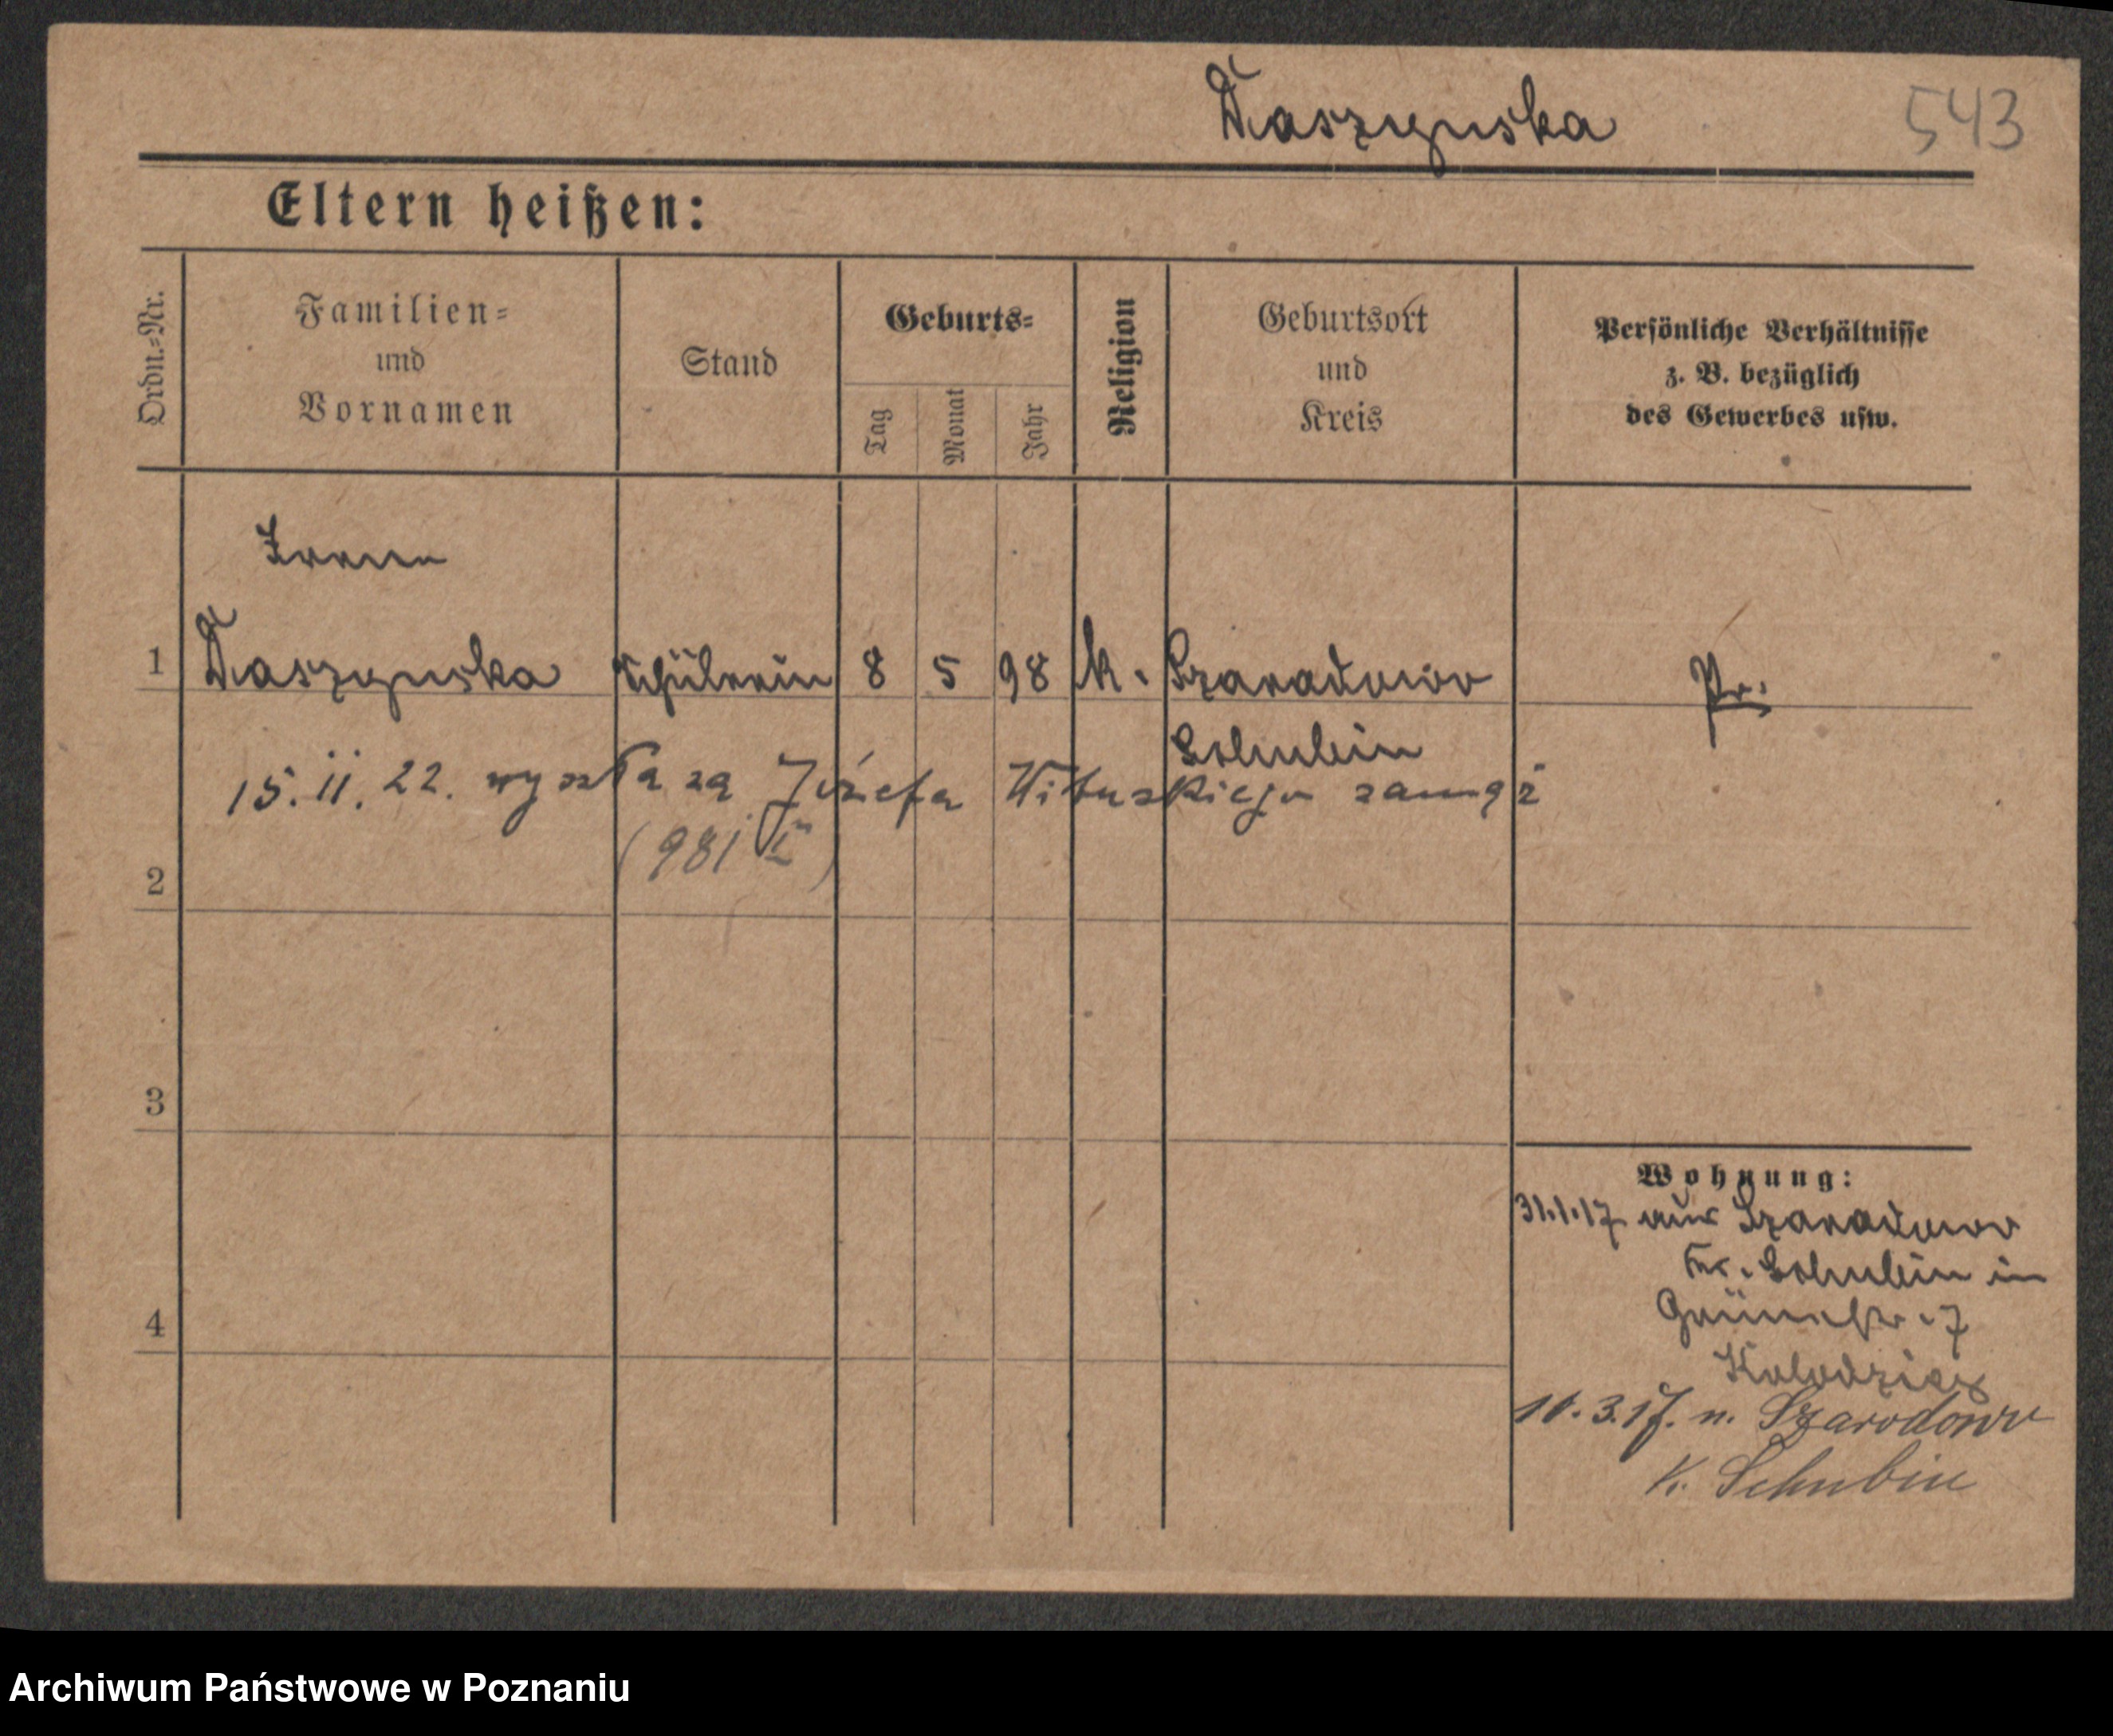 Daszynska 543
Eltern heißen:
Ordn.-Nr.
Familien-
und
Vornamen
Stand
Geburts-
Tag
Monat
Jahr
Religion
Geburtsort
und
Kreis
Persönliche Verhältnisse
z. B. bezüglich
des Gewerbes usw.
Irene
1 Daszynska Schülerin 8 5 98 k. Szaradowo Pr.
Schubin
15.11.22. wyszła za Józefa Wituskiego zamąż
(981 )
2
3
4
Wohnung:
31.1.17 aus Szaradowo
Kr. Schubin in
Grünestr. 7
Kolodziej
10.3.17. n. Szarodowo
K. Schubin
Archiwum Państwowe w Poznaniu